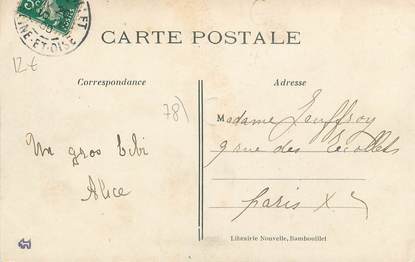 5
NE-ET-OISE
12 €
CARTE POSTALE
Correspondance
Adresse
78)
Un gros bibi
Alice
Madame Jouffroy
9 rue des Récollets
Paris X
Librairie Nouvelle, Rambouillet